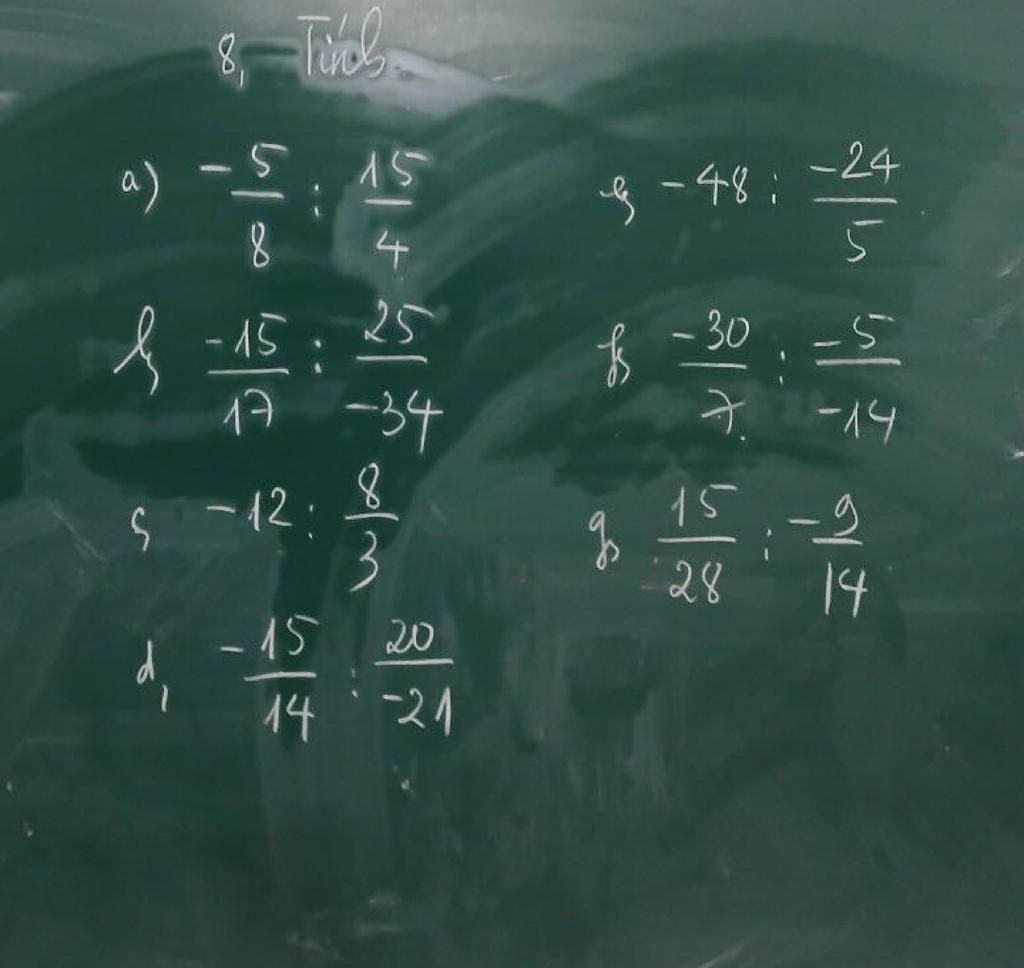 8, Tính
a) -5/8 : 15/4
b, -15/17 : 25/-34
c, -12 : 8/3
d, -15/14 : 20/-21
e, -48 : -24/5
f, -30/7 : -5/-14
g, 15/28 : -9/14